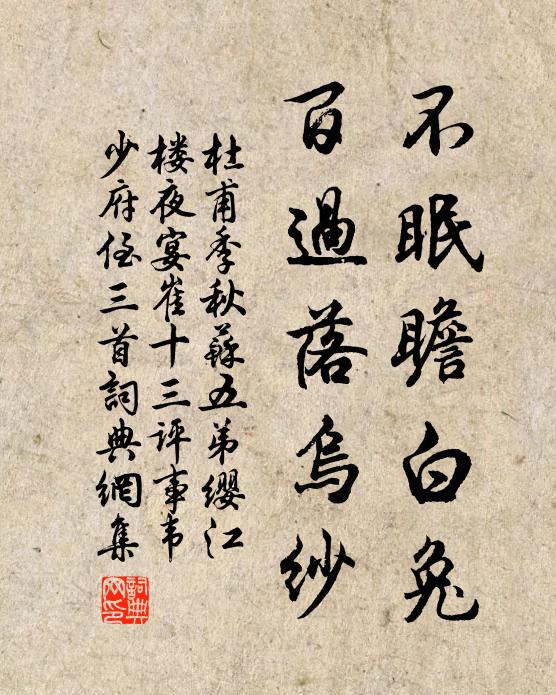 不眠瞻白兔
百過落烏紗
杜甫季秋蘇五弟纓江
楼夜宴崔十三评事韦
少府侄三首詞典網集
詞典
网印